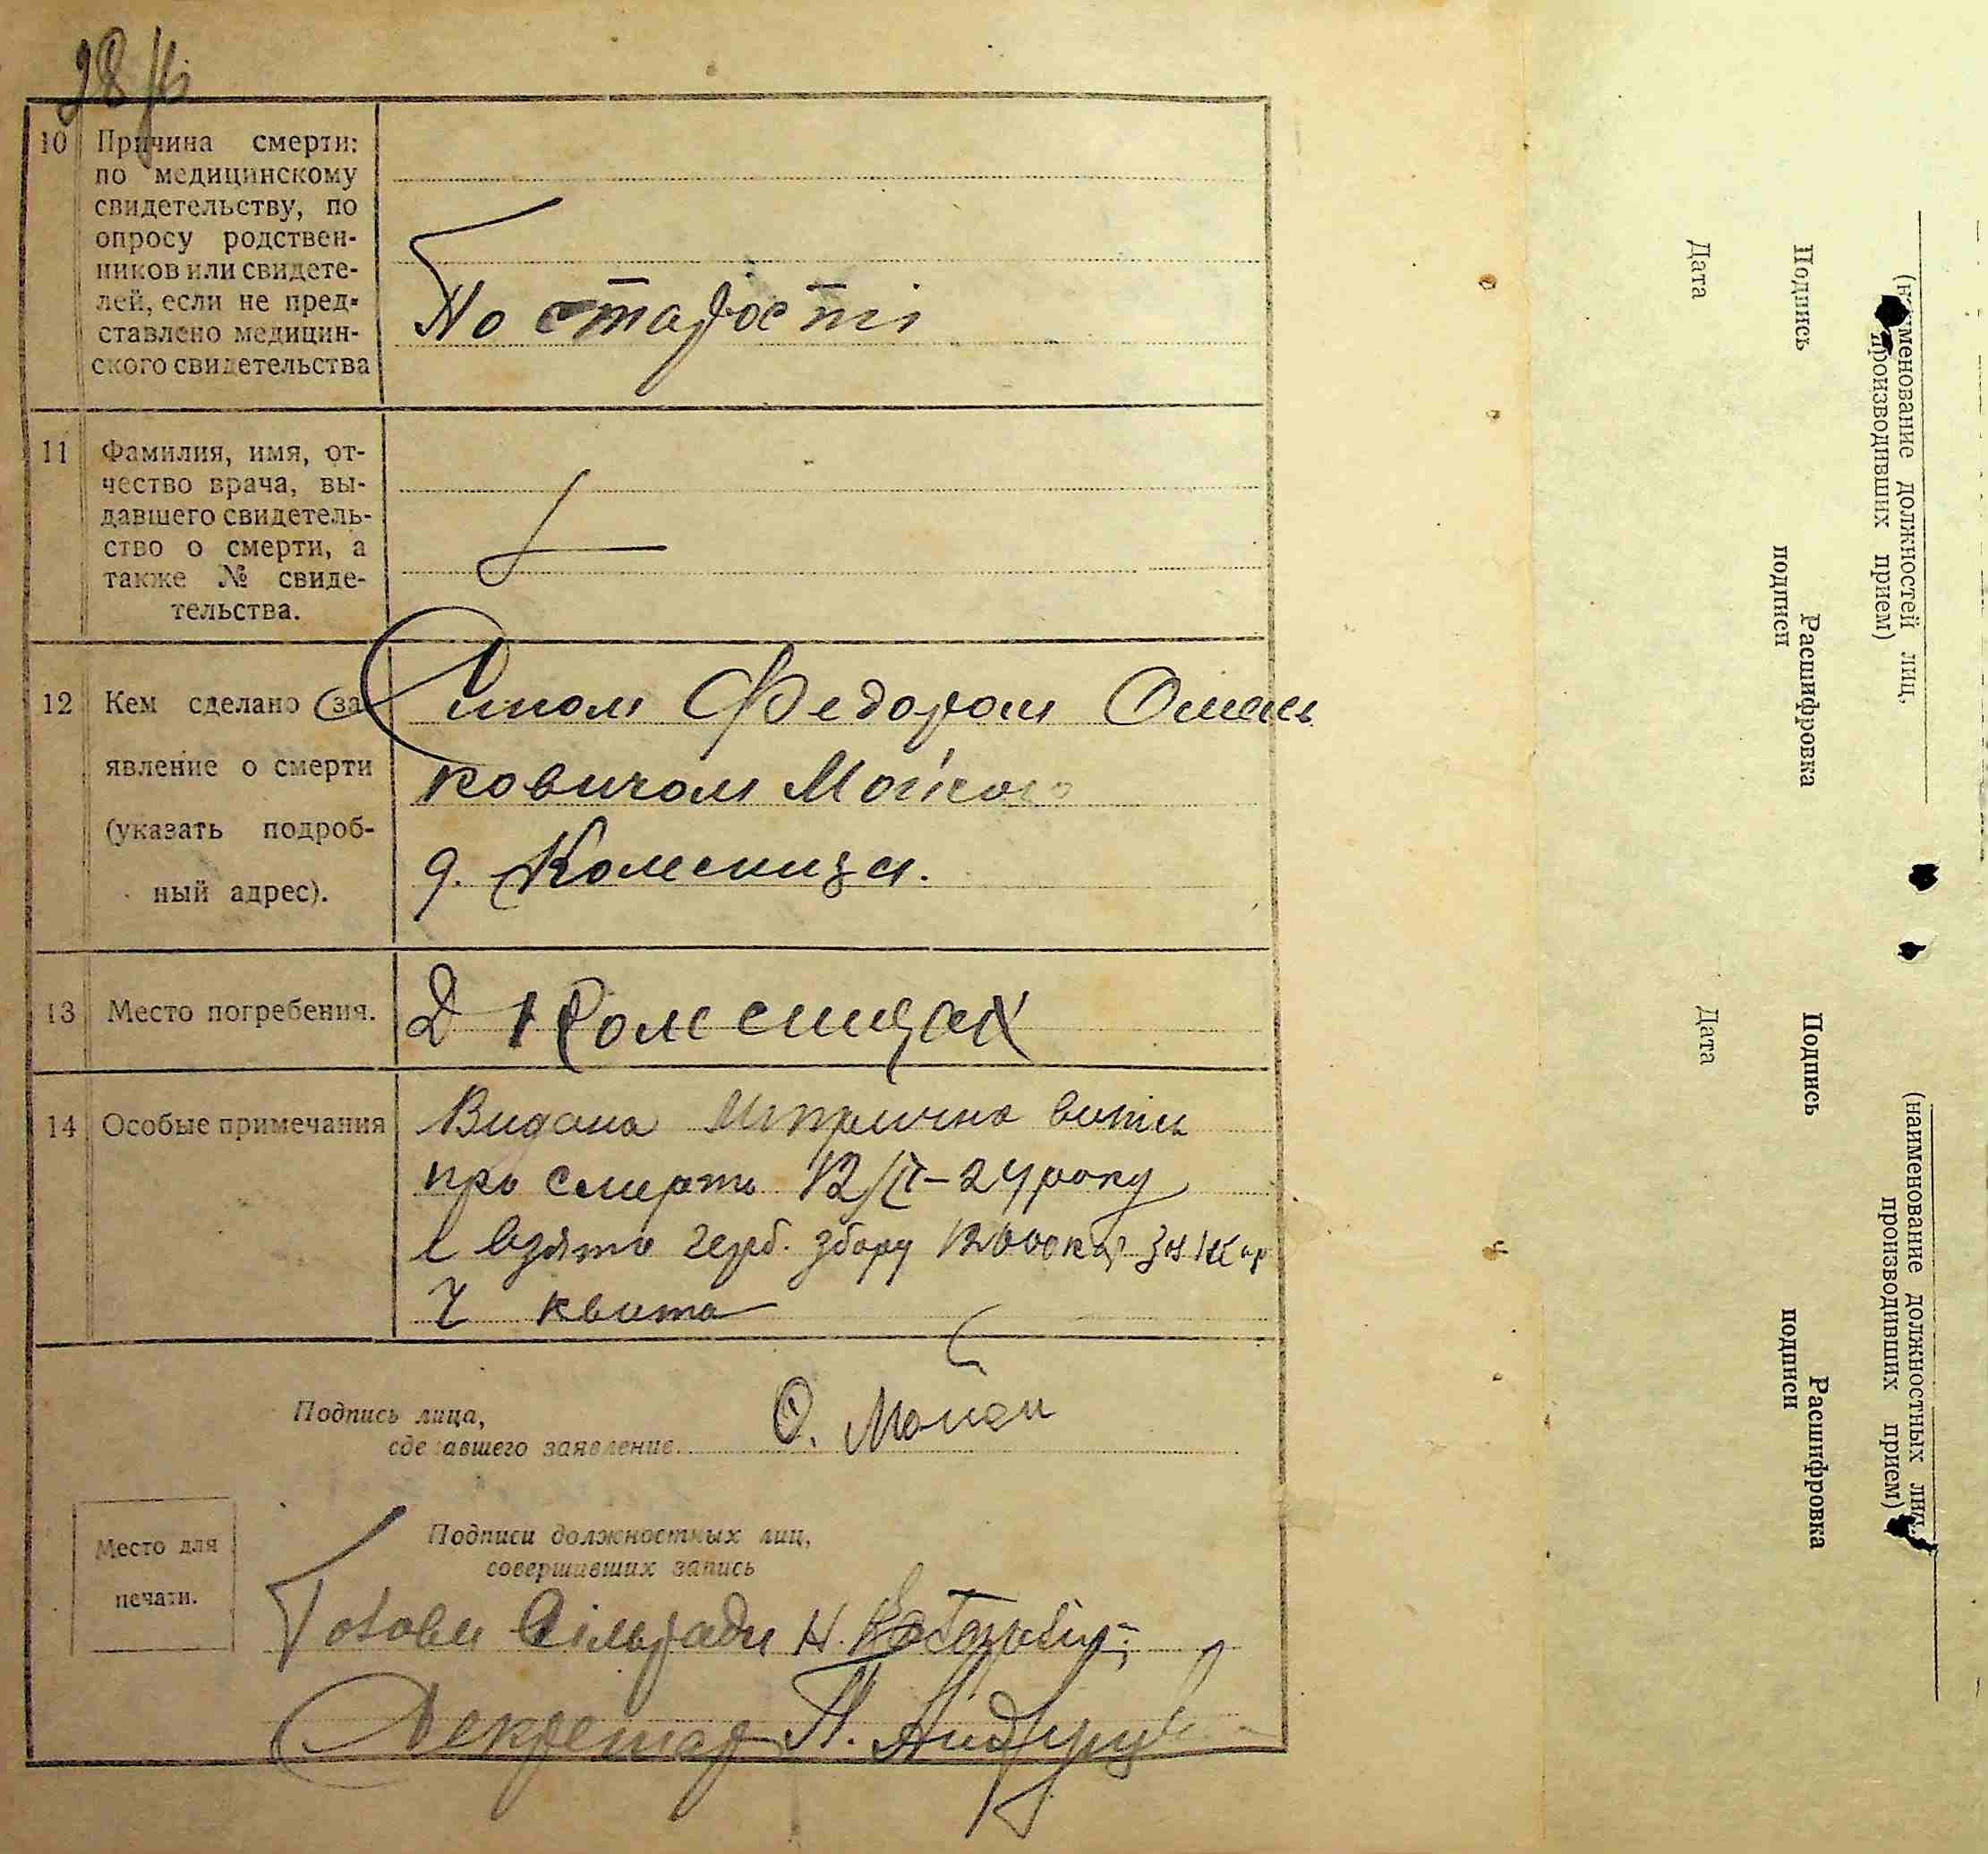 10 Причина смерти:
по медицинскому
свидетельству, по
опросу родствен-
ников или свидете-
лей, если не пред-
ставлено медицин-
ского свидетельства
По старості
11 Фамилия, имя, от-
чество врача, вы-
давшего свидетель-
ство о смерти, а
также № свиде-
тельства.
12 Кем сделано за-
явление о смерти
(указать подроб-
ный адрес).
Сином Федором Омель
ковичом
д.
13 Место погребения.
14 Особые примечания
Видана Метрична випись
про смерть 12/II-24 року
і взято герб. збору
Подпись лица,
сделавшего заявление
О.
Место для
печати.
Подписи должностных лиц,
совершивших запись
Голова Сільради Н.
Секретар П.
(наименование должностей лиц,
производивших прием)
Подпись
Расшифровка
подписи
Дата
(наименование должностных лиц,
производивших прием)
Подпись
Расшифровка
подписи
Дата